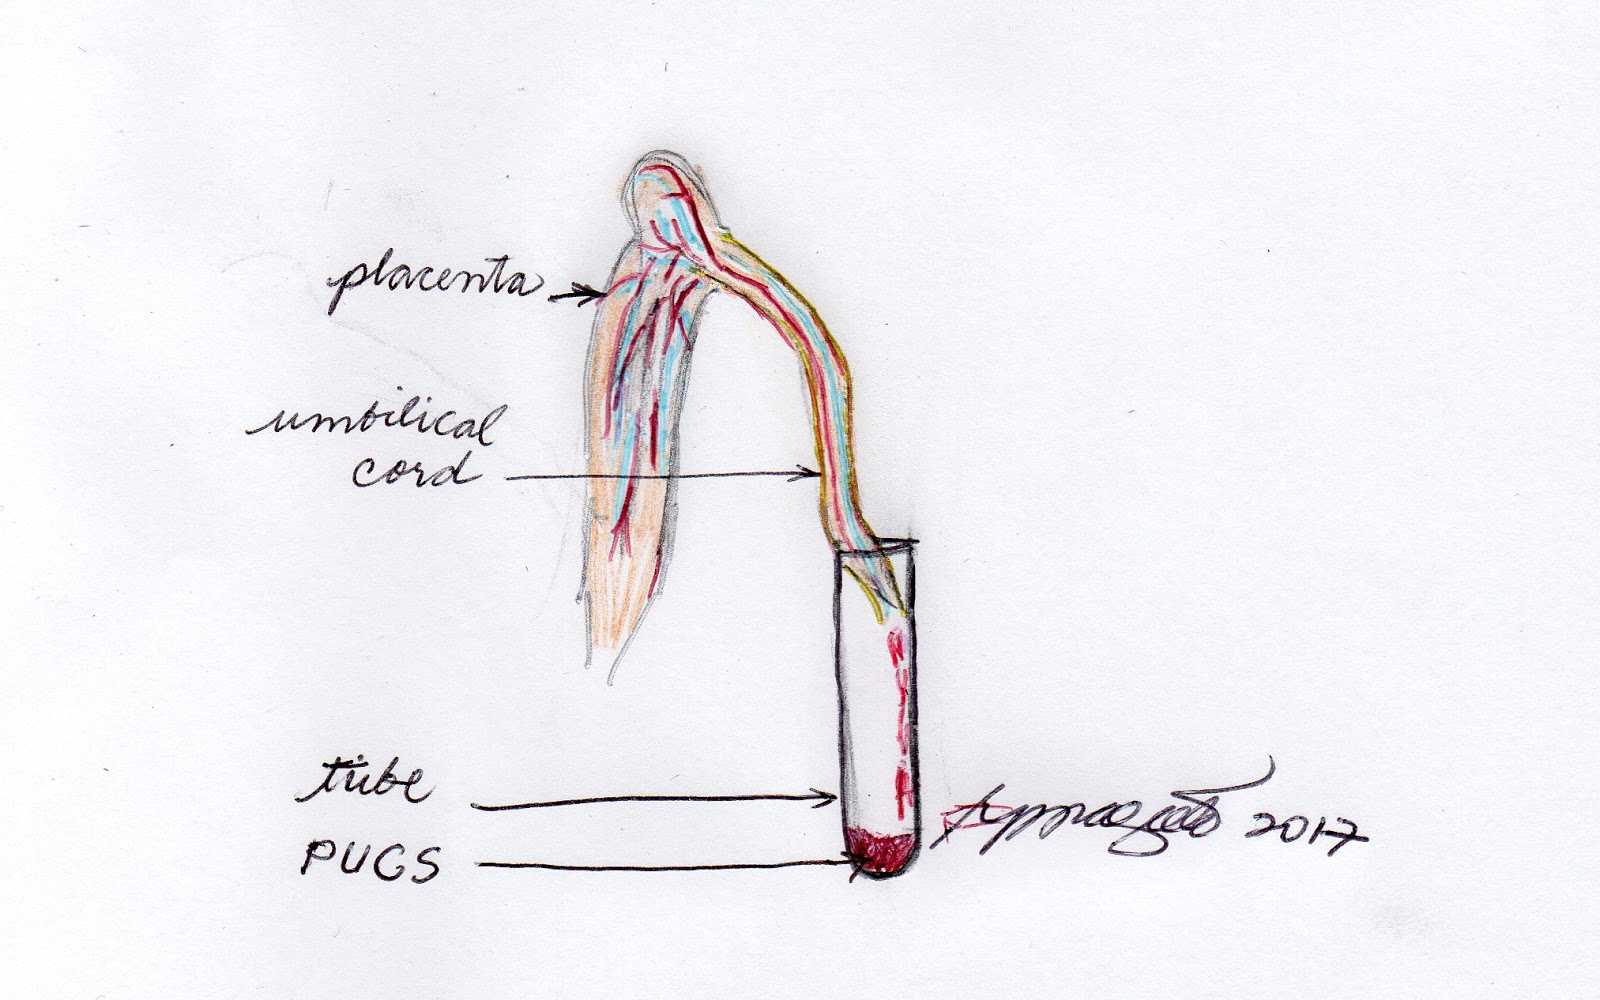 placenta
umbilical
cord
tube
PUGS
2017